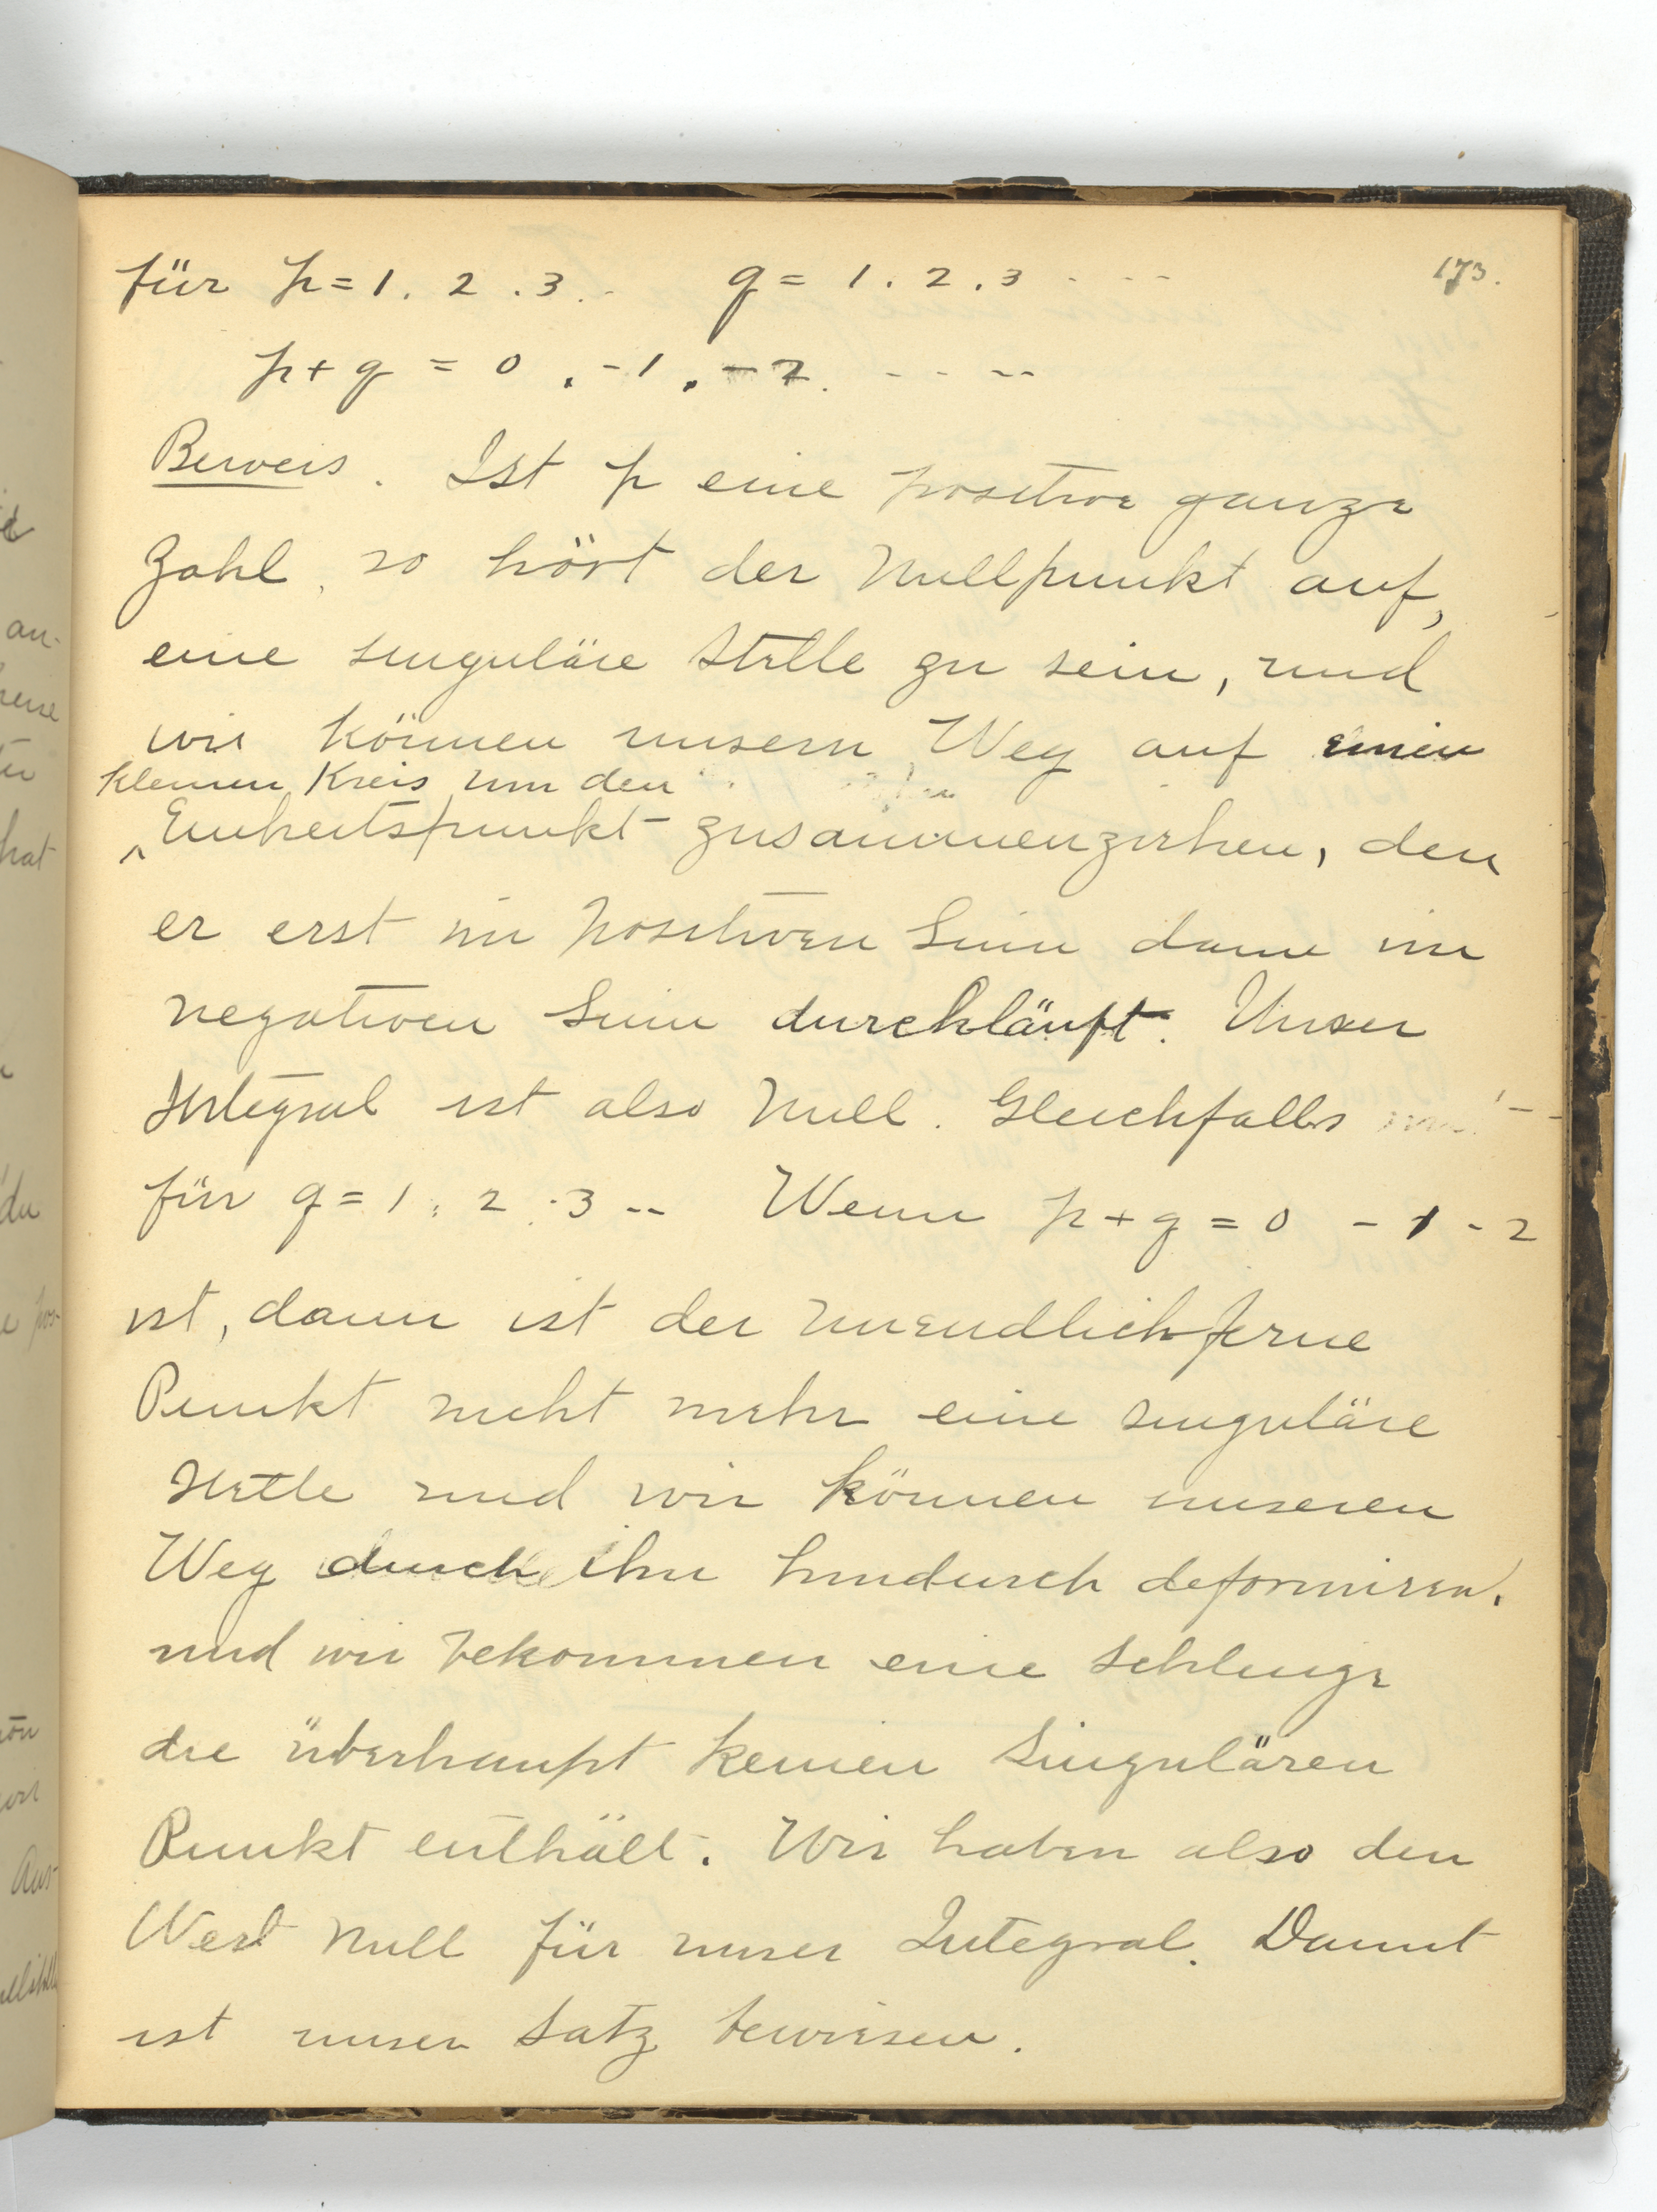 173.
für p = 1. 2. 3. - q = 1. 2. 3 - - -
p + q = 0, -1, -2. - - - -
Beweis. Ist p eine positive ganze
Zahl, so hört der Nullpunkt auf,
eine singuläre Stelle zu sein, und
wir können unsern Weg auf einen
kleinen Kreis um den
Einheitspunkt zusammenziehen, den
er erst im positiven Sinn dann im
negativen Sinn durchläuft. Unser
Integral ist also Null. Gleichfalls
für q = 1, 2, 3 -- Wenn p + q = 0 - 1 - 2
ist, dann ist der unendlichferne
Punkt nicht mehr eine singuläre
Stelle und wir können unseren
Weg durch ihn hindurch deformiren.
und wir bekommen eine Schlinge
die überhaupt keinen singulären
Punkt enthält. Wir haben also den
Wert Null für unser Integral. Damit
ist unser Satz bewiesen.